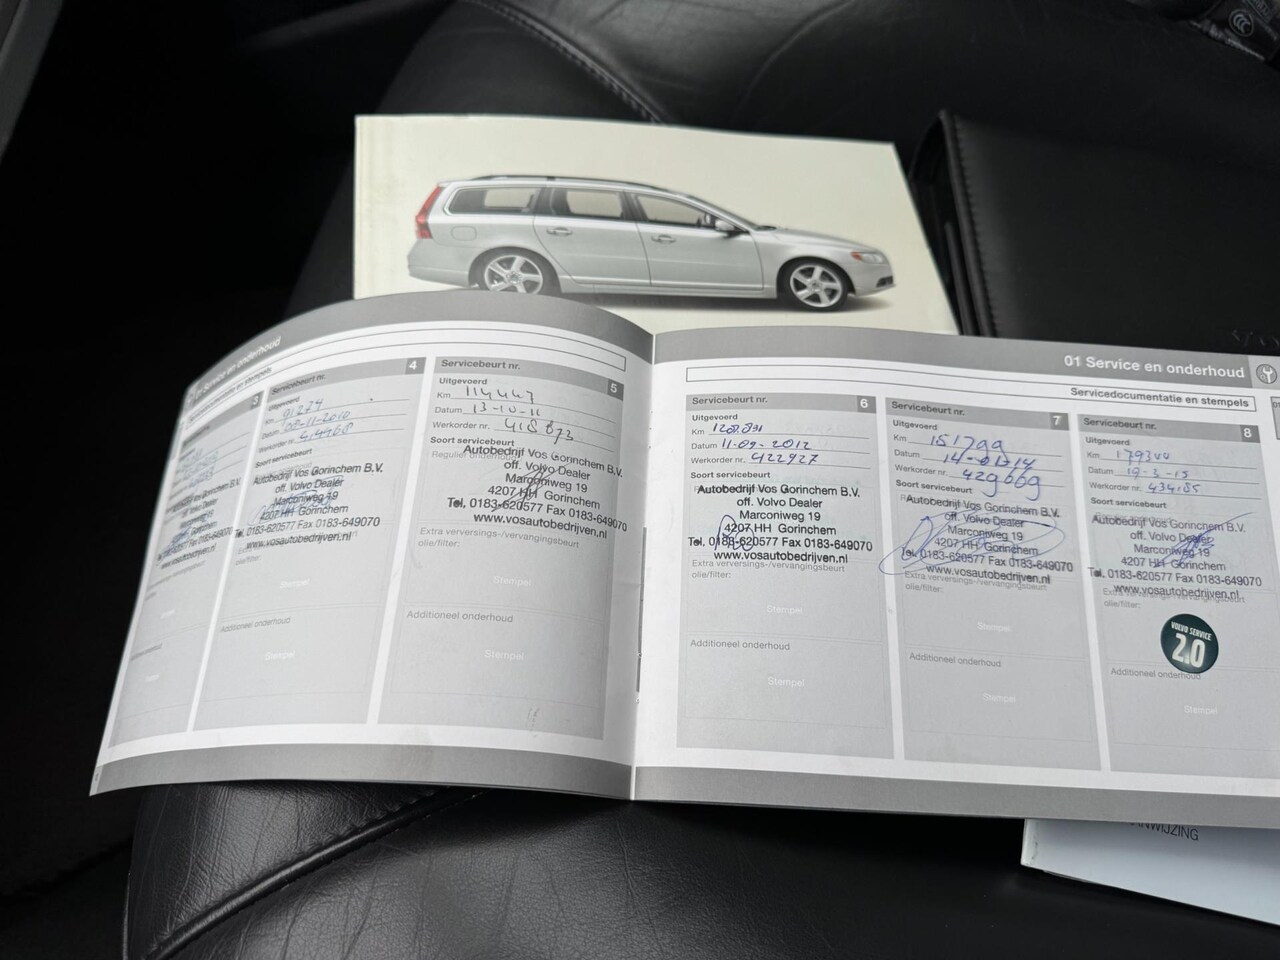 01 Service en onderhoud
Servicedocumentatie en stempels
3
Servicebeurt nr. 4
Uitgevoerd
Km 91274
Datum 08-11-2010
Werkorder nr. 414468
Soort servicebeurt
Autobedrijf Vos Gorinchem B.V.
off. Volvo Dealer
Marconiweg 19
4207 HH Gorinchem
Tel. 0183-620577 Fax 0183-649070
www.vosautobedrijven.nl
Stempel
Additioneel onderhoud
Stempel
Servicebeurt nr. 5
Uitgevoerd
Km 114447
Datum 13-10-11
Werkorder nr. 418673
Soort servicebeurt
Regulier onderhoud
Autobedrijf Vos Gorinchem B.V.
off. Volvo Dealer
Marconiweg 19
4207 HH Gorinchem
Tel. 0183-620577 Fax 0183-649070
www.vosautobedrijven.nl
Extra verversings-/vervangingsbeurt
olie/filter:
Stempel
Additioneel onderhoud
Stempel
01 Service en onderhoud
Servicedocumentatie en stempels
Servicebeurt nr. 6
Uitgevoerd
Km
Datum 11-09-2012
Werkorder nr. 422927
Soort servicebeurt
Autobedrijf Vos Gorinchem B.V.
off. Volvo Dealer
Marconiweg 19
4207 HH Gorinchem
Tel. 0183-620577 Fax 0183-649070
www.vosautobedrijven.nl
Extra verversings-/vervangingsbeurt
olie/filter:
Stempel
Additioneel onderhoud
Stempel
Servicebeurt nr. 7
Uitgevoerd
Km 151799
Datum 14-01-14
Werkorder nr. 429669
Soort servicebeurt
Autobedrijf Vos Gorinchem B.V.
off. Volvo Dealer
Marconiweg 19
4207 HH Gorinchem
Tel. 0183-620577 Fax 0183-649070
www.vosautobedrijven.nl
Extra verversings-/vervangingsbeurt
olie/filter:
Stempel
Additioneel onderhoud
Stempel
Servicebeurt nr. 8
Uitgevoerd
Km 179344
Datum 19-3-15
Werkorder nr. 434185
Soort servicebeurt
Autobedrijf Vos Gorinchem B.V.
off. Volvo Dealer
Marconiweg 19
4207 HH Gorinchem
Tel. 0183-620577 Fax 0183-649070
www.vosautobedrijven.nl
Extra verversings-/vervangingsbeurt
olie/filter:
VOLVO SERVICE
2.0
Additioneel onderhoud
Stempel